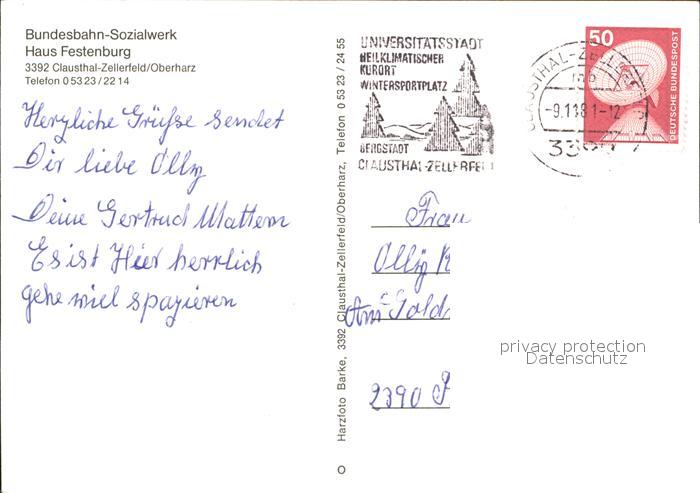 Bundesbahn-Sozialwerk
Haus Festenburg
3392 Clausthal-Zellerfeld/Oberharz
Telefon 0 53 23 / 22 14
Herzliche Grüße sendet
Dir liebe Olly
Deine Gertrud Mattern
Es ist Hier herrlich
gehe wiel spazieren
Harzfoto Barke, 3392 Clausthal-Zellerfeld/Oberharz, Telefon 0 53 23 / 24 55
UNIVERSITÄTSSTADT
HEILKLIMATISCHER
KURORT
WINTERSPORTPLATZ
BERGSTADT
CLAUSTHAL-ZELLERFELD
CLAUSTHAL-ZELLERFE
-9.11.81-12
339
50
DEUTSCHE BUNDESPOST
Frau
Olly
Am Gold
2390
privacy protection
Datenschutz